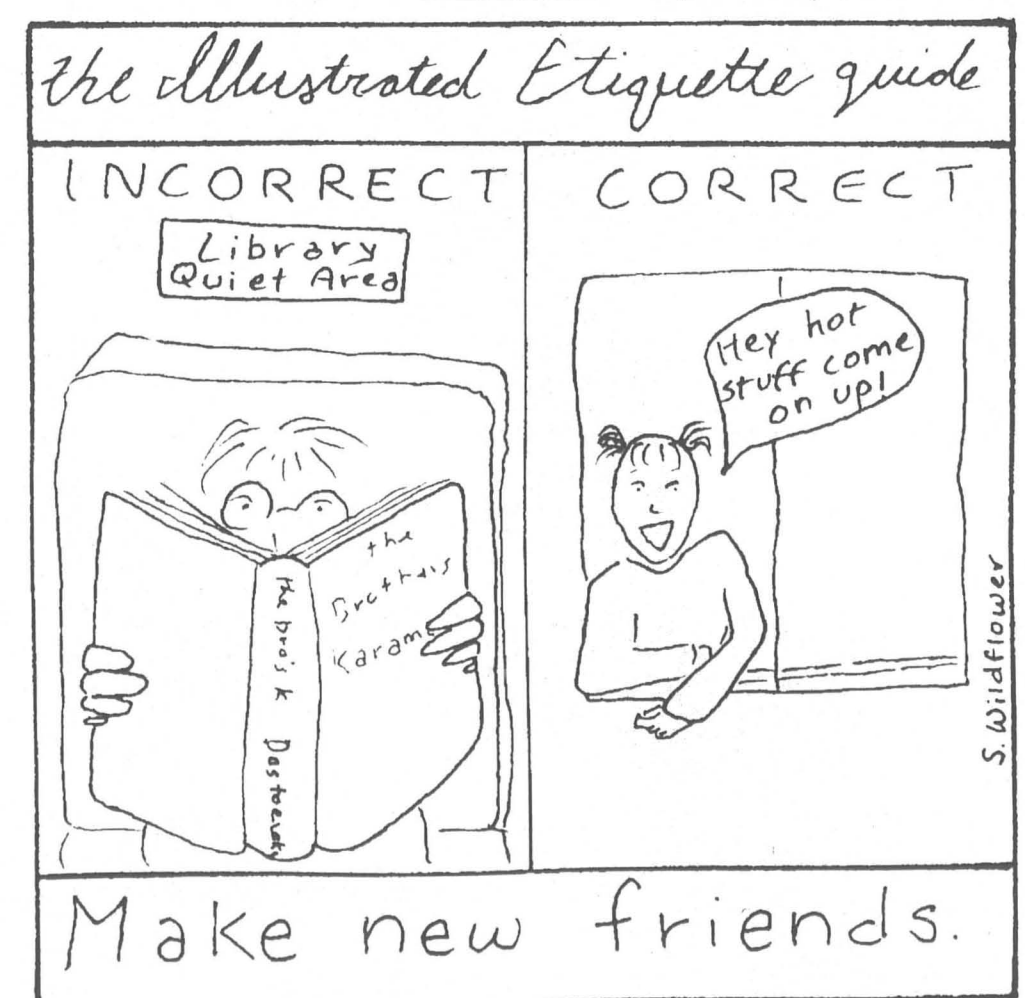 the Illustrated Etiquette guide
INCORRECT
Library
Quiet Area
the
Brothers
Karam
the bro's k Dostoevsky
CORRECT
Hey hot
stuff come
on up!
S. Wildflower
Make new friends.